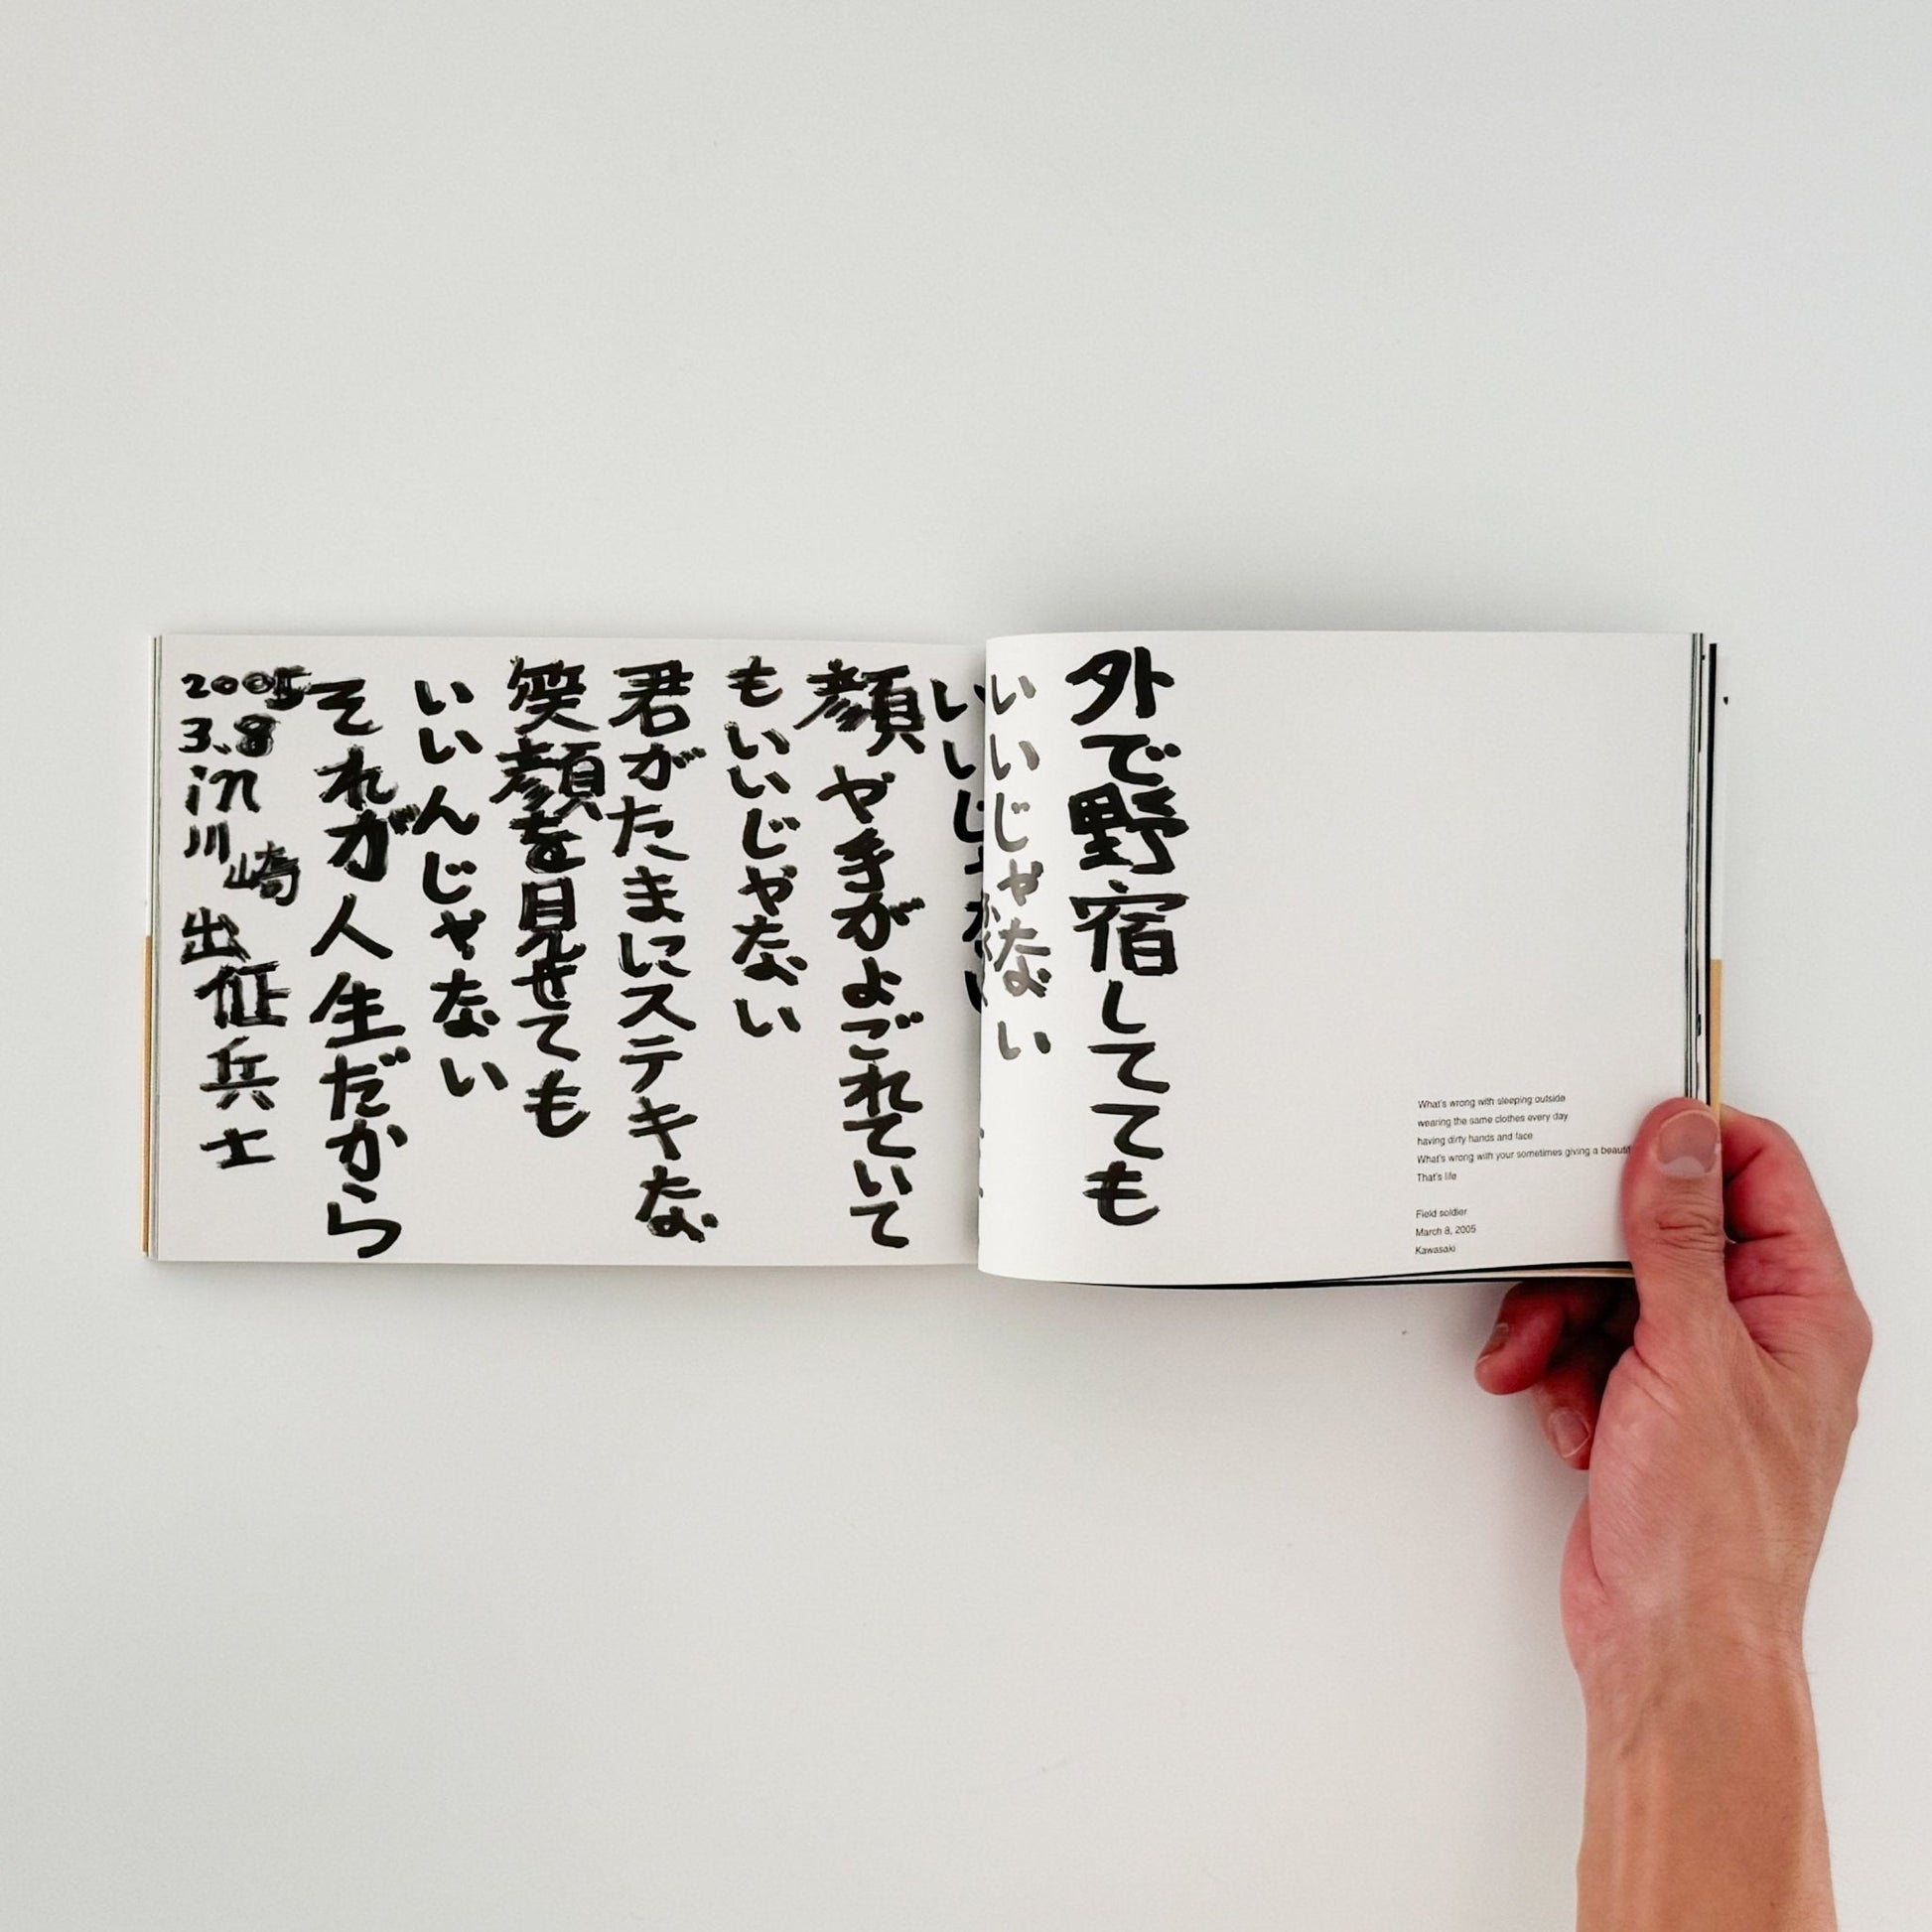 外で野宿してても
いいじゃない
いいじゃない
顔や手がよごれていて
もいいじゃない
君がたまにステキな
笑顔を見せても
いいんじゃない
それが人生だから
2005
3.8
in
川崎
出征兵士
What's wrong with sleeping outside
wearing the same clothes every day
having dirty hands and face
What's wrong with your sometimes giving a
That's life
Field soldier
March 8, 2005
Kawasaki